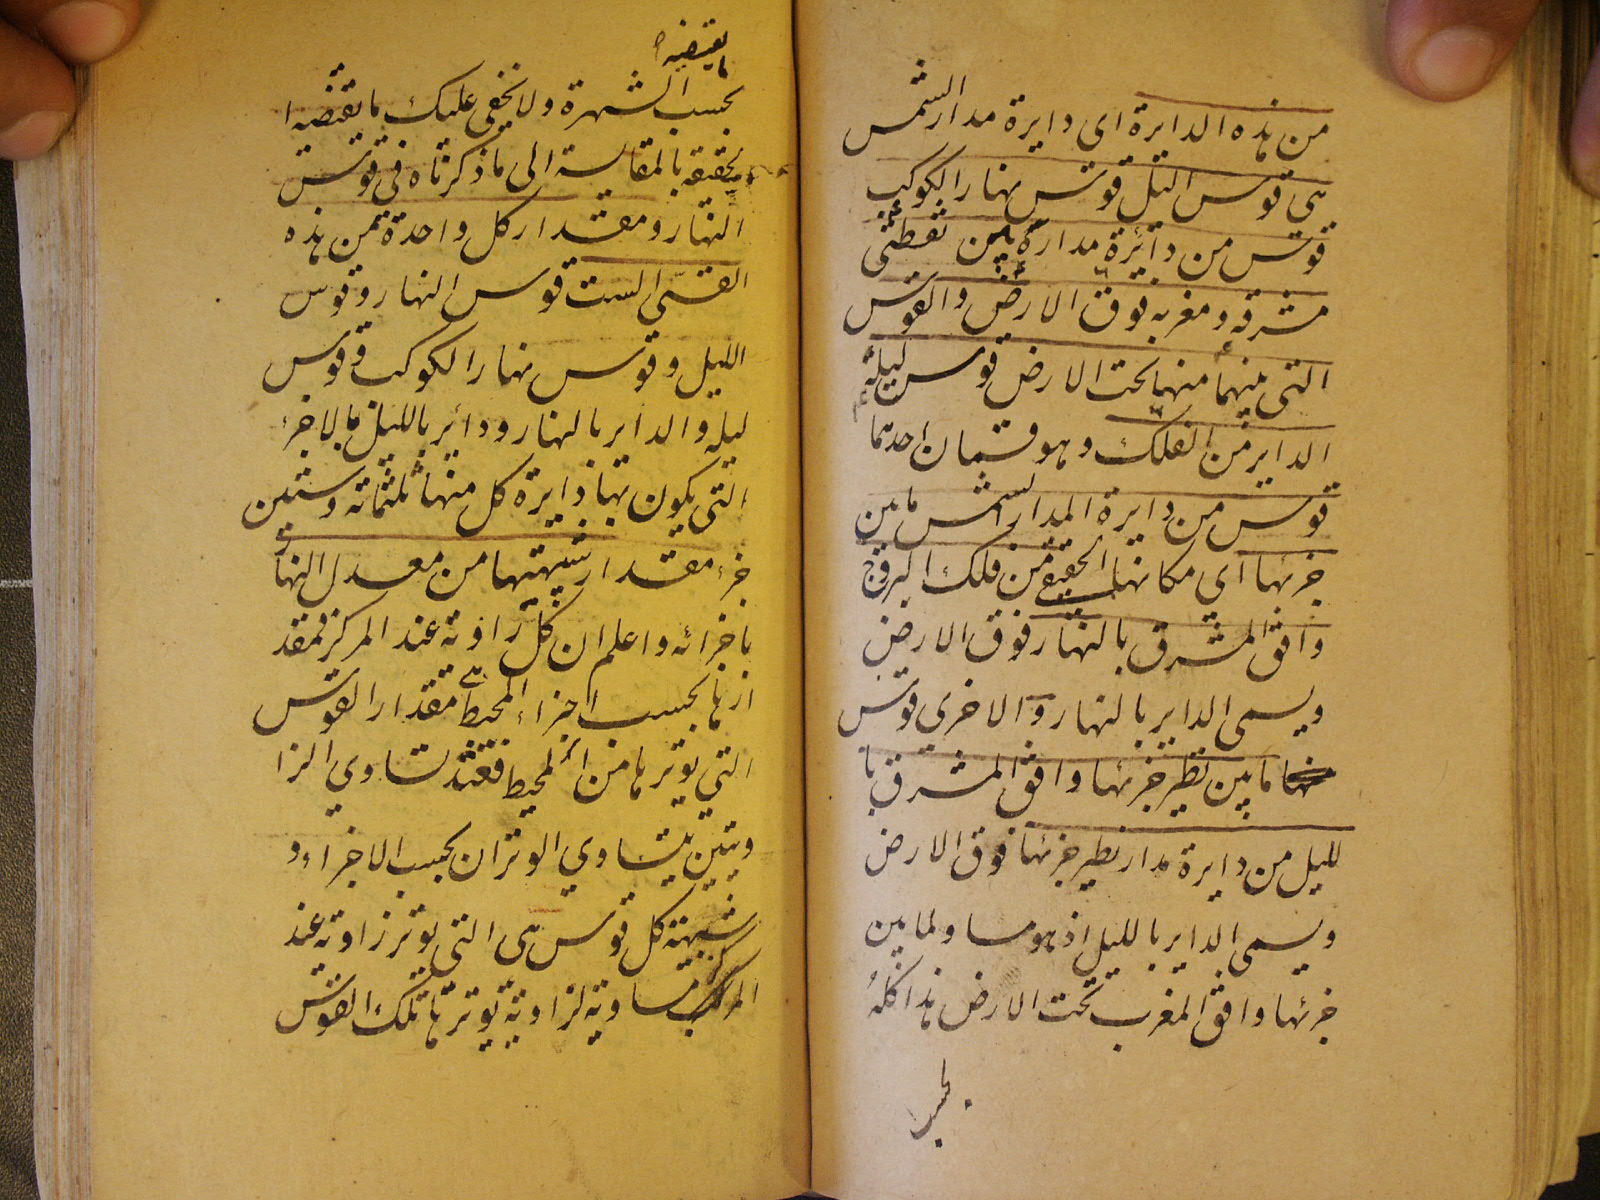 من هذه الدايرة اى دايرة مدار الشمس
هي قوس الليل قوس نهار الكوكب
قوس من دائرة مداره بين نقطتى
مشرقه ومغربه فوق الارض والقوس
التى منهما منها تحت الارض قوس ليله
الداير من الفلك وهو قسمان احدهما
قوس من دايرة المدار الشمس ما بين
جزئها اى مكانها الحقيقى من فلك البروج
وافق المشرق بالنهار فوق الارض
ويسمى الداير بالنهار والاخرى قوس
ما بين نظير جزئها وافق المشرق با
لليل من دايرة مدار نظير جزئها فوق الارض
ويسمى الداير بالليل اذ هو مساو لما بين
جزئها وافق المغرب تحت الارض هذا كله
بحسب
ما يقتضيه
بحسب الشهرة ولا يخفى عليك ما يقتضيه ا
لحقيقة بالمقايسة الى ما ذكرناه فى قوس
النهار ومقدار كل واحدة من هذه
القسى الست قوس النهار وقوس
الليل وقوس نهار الكوكب وقوس
ليله والداير بالنهار ودائر بالليل بالاجزاء
التى يكون بها دايرة كل منها ثلثمائه وستين
جزء مقدار شبيهتها من معدل النهار
باجزائه واعلم ان كل زاوية عند المركز فمقد
ارها بحسب اجزاء المحيط مقدار القوس
التي يوترها من المحيط فعند تساوي الزا
ويتين يتساوي الوتران بحسب الاجزاء و
شبيهة كل قوس هى التي يوتر زاوية عند
المركز مساوية لزاوية يوترها تلك القوس